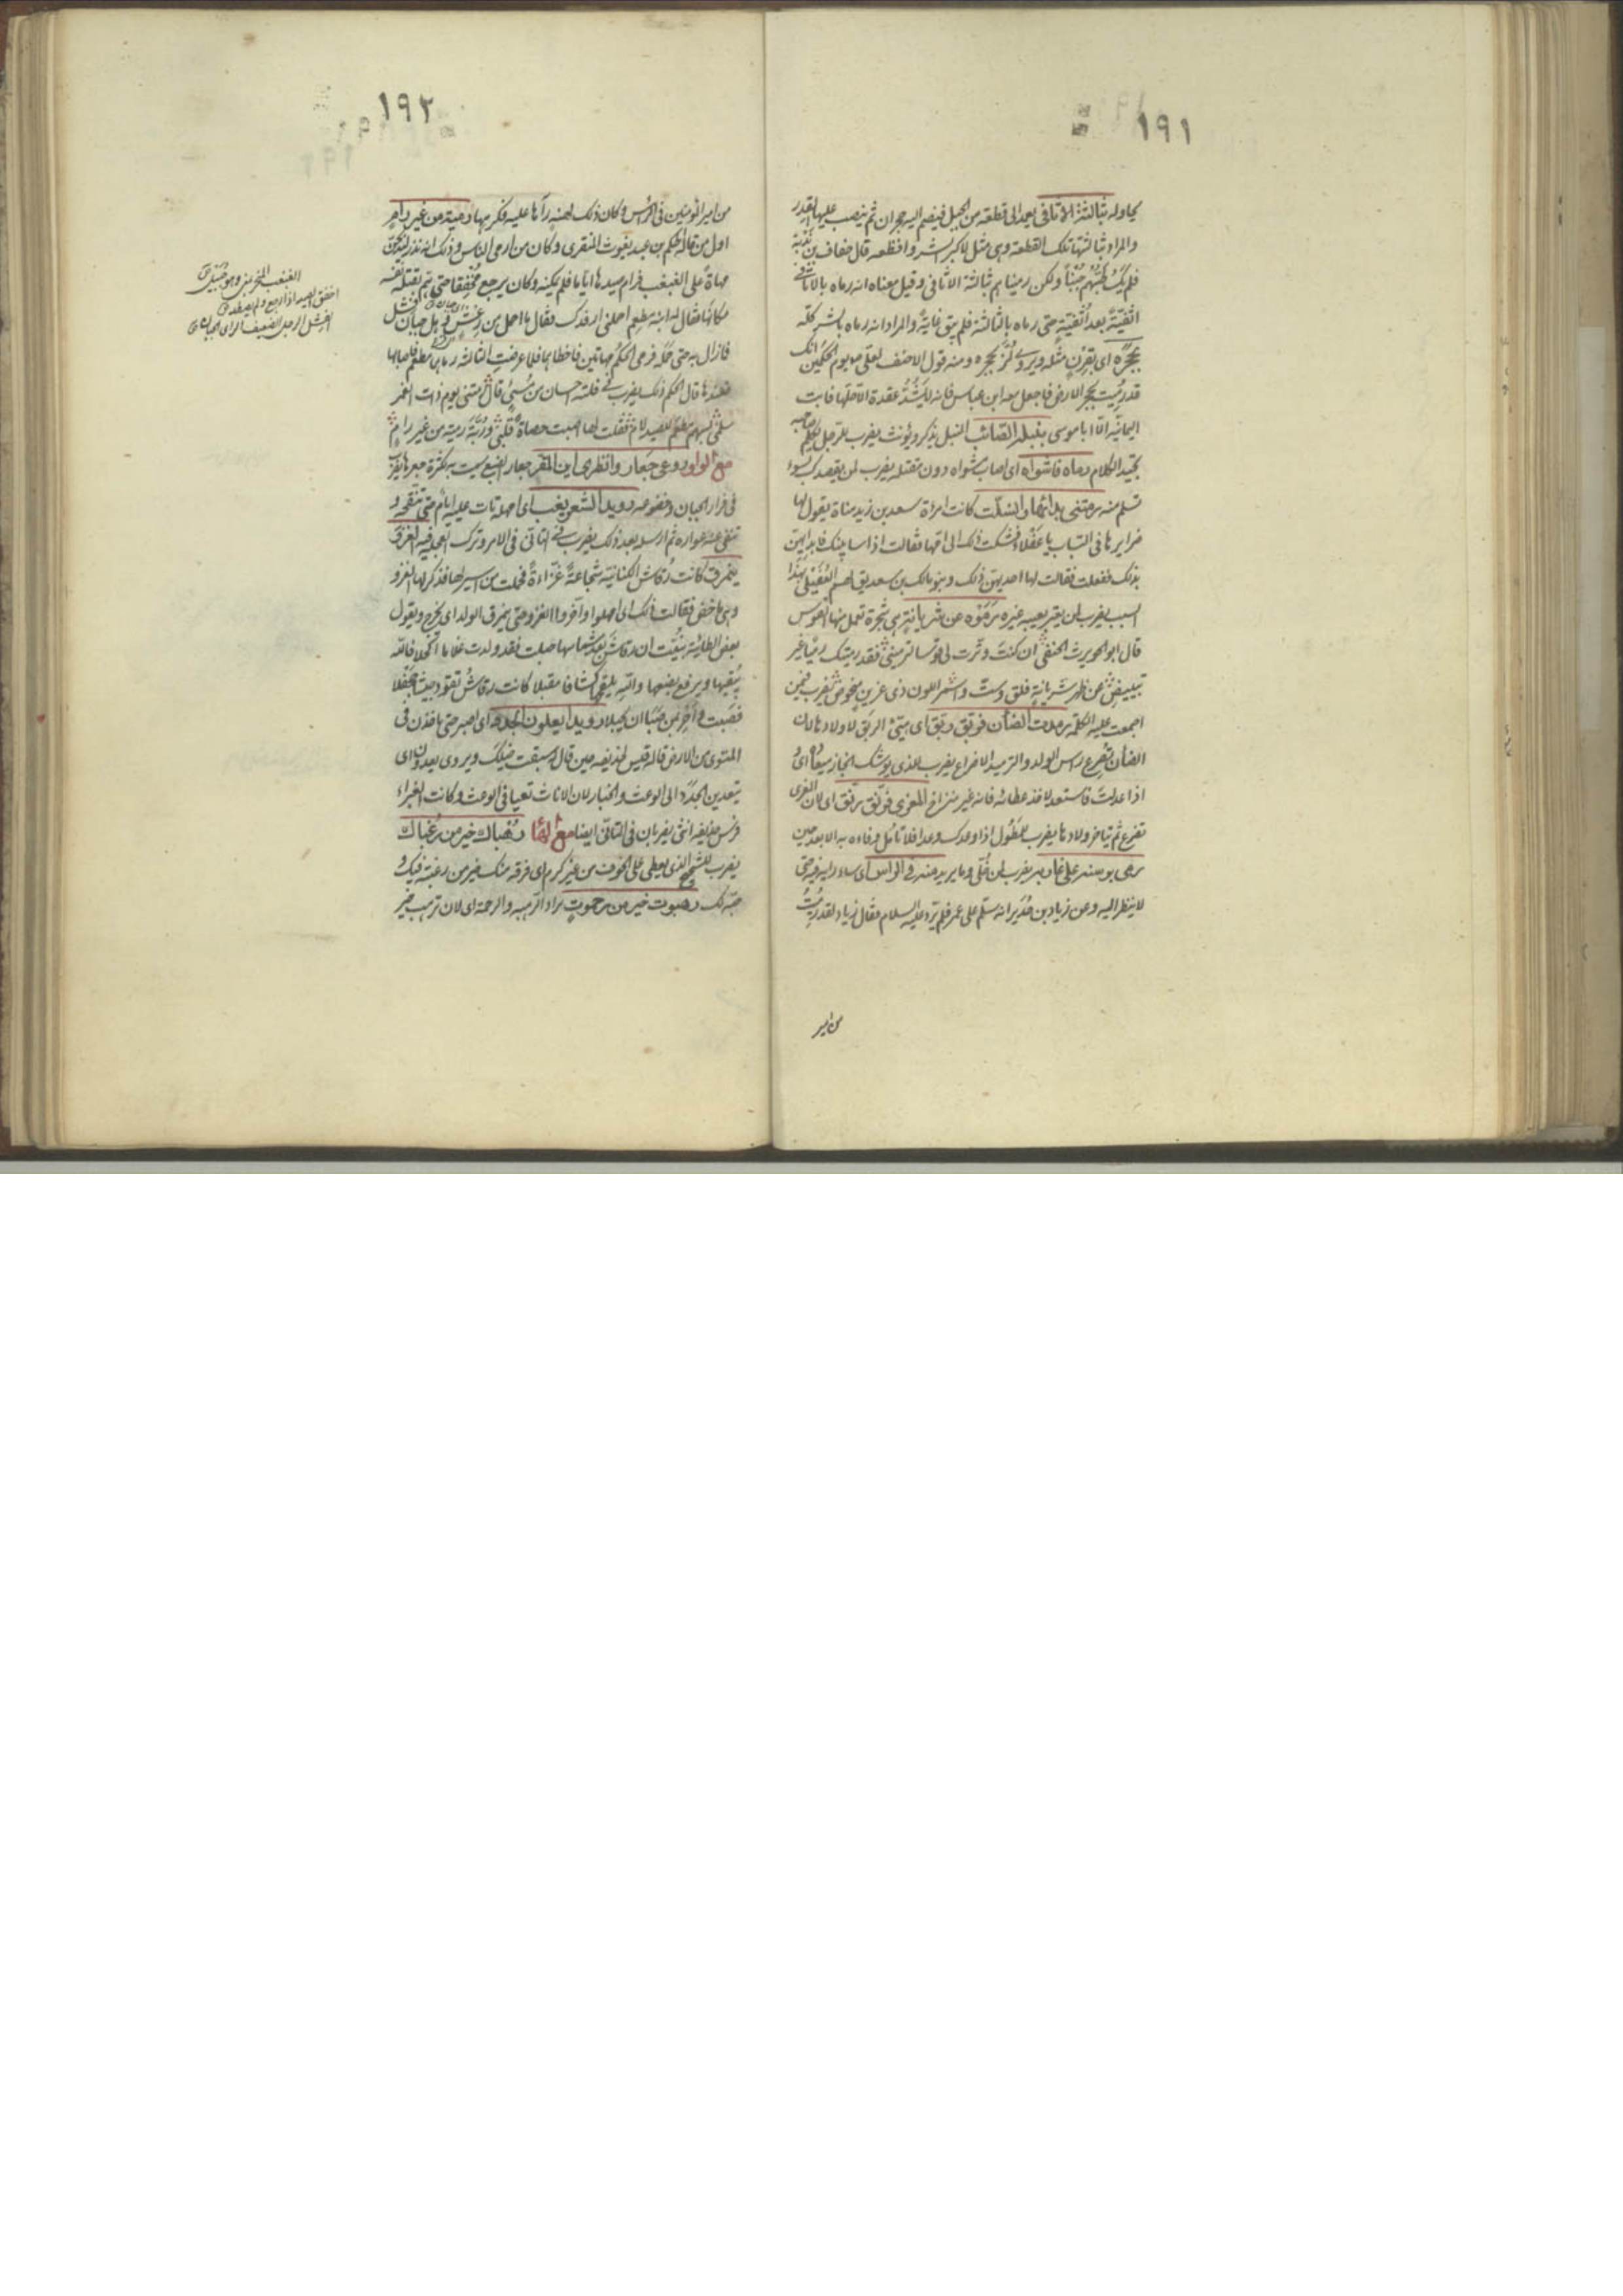 ١٩١
يحاوله بثالثة الاثافى يعمد الى قطعة من الجبل فيضم اليه حجران ثم ينصب عليها القدر
والمراد بثالثتها تلك القطعة وهى مثل لاكبر الشر وافظعه قال خفاف بن ندبة
فلم يك طبهم جبنا ولكن رميناهم بثالثة الاثافى وقيل معناه انه رماه بالاثافى
اثفية بعد اثفية حتى رماه بالثالثة فلم يبق غاية والمراد انه رماه بالشر كله
بحجره اى بقرن مثله ويروى لز بحجره ومنه قول الاحنف لعلى يوم الحكمين انك
قد رميت بحجر الارض فاجعل معه ابن عباس فانه لا يشد عقدة الا حلها فابت
اليمانية الا ابا موسى بنبله الصائب النبل يذكر ويؤنث يضرب للرجل يكلم صاحبه
بجيد الكلام رماه فاشواه اى اصاب شواه دون مقتله يضرب لمن يقصد بسوء
فسلم منه رمتنى بدائها وانسلت كانت امرأة سعد بن زيد مناة يقول لها
ضرايرها فى السباب يا عفلاء فشكت ذلك الى امها فقالت اذا سابينك فابدائيهن
بذلك ففعلت فقالت لها احديهن ذلك وبنو مالك بن سعد يقال لهم العفيلى بهذا
السبب يضرب لمن يعير بعيبه غيره رموه عن شريانة هى شجرة تعمل منها القوس
قال ابو الحويرث الحنفى ان كنت وترت لى قوسا ترمينى فقد رميتك رميا غير
تبييض عن ظهر شريانة فلق وست واشمر اللون ذى غرين منحوض يضرب فيمن
اجمعت عليه الكلمة رمدت الضأن فربق ربق اى هيئ الربق لاولادها لان
الضأن تضرع راس الولد والترميد الاضراع يضرب للذى يوشك انجاز ميعاده اى
اذا عدلت فاستعد لاخذ عطائه فانه غير متراخ المعزى فرنق رنق اى لان المعزى
تضرع ثم يتاخر ولادها يضرب للمطول اذا وعدك وعدا فلا تأمل وفاءه به الا بعد حين
رمى بوسنه على غاربه يضرب لمن خلى وما يريد منه فى الراس اى ساء رايه فيه حتى
لا ينظر اليه وعن زياد بن حدير انه سلم على عمر فلم يرد عليه السلام فقال زياد لقد رميت
من امير
١٩٢
من امير المؤمنين فى الرأس وكان ذلك لهنة رآها عليه فكرهها رمية من غير رام
اول من قاله الحكم بن عبد يغوث المنقرى وكان من ارمى الناس وذلك انه نذر ليذبحن
مهاة على الغبغب فرام صيدها اياما فلم يمكنه وكان يرجع مخفقا حتى هم بقتل نفسه
مكانها فقال له ابنه مطعم احملنى ارفدك فقال ما احمل من رعش وهل جبان فشل
فما زال به حتى حمله فرمى الحكم مهاتين فاخطأهما فلما عرضت الثالثة رماها مطعم فاصابها
فعندها قال الحكم ذلك يضرب فى فلتة احسان من مسئ قال رمتنى يوم ذات الغمر
سلمى بسهم مطعم للصيد لام فقلت لها اصبت حصاة قلبى وربت رمية من غير رام
مع الواو روغى جعار وانظرى اين المفر جعار الضبع سميت به لكثرة جعرها يضرب
فى فرار الجبان وخضوعه رويد الشعر يغب اى امهله تأت عليه ايام حتى تنقحه و
تنفى عنه عواره ثم ارسله بعد ذلك يضرب فى التأنى فى الامر وترك العجلة فيه الغزو
يتمرق كانت رقاش الكنانية شجاعة غزاءة فحملت من اسير لها فذكر لها الغزو
وهى ماخض فقالت ذلك اى امهلوا واخروا الغزو حتى يمرق الولد اى يخرج ويقول
بعض الطائية نبئت ان رقاش بعد شماسها حبلت فقد ولدت غلاما اكحلا فالله
يبقيها ويرفع بضعها والله يلقحها كشافا مقبلا كانت رقاش تقود جيشا جحفلا
فصبت واحر بمن صبا ان يحبلا رويد يعلون الجدد اى اصبر حتى ياخذن فى
المستوى من الارض قاله قيس لحذيفة حين قال سبقت خيلك ويروى يعدون اى
يتعدين الجدد الى الوعث والخبار لان الاناث تعيا فى الوعث وكانت الغبراء
فرس حذيفة انثى يضربان فى التانى ايضا مع الها رهباك خير من رغباك
يضرب للشحيح الذى يعطى على الخوف من غير كرم اى فرقه منك خير من رغبته فيك و
حبه لك رهبوت خير من رحموت يراد الرهبة والرحمة اى لان ترهب خير
الغبغب المنحر بمنى وهو جبيل ق
اخفق الصيد اذا رجع ولم يصطد ق
الفشل الرجل الضعيف الراى الجبان